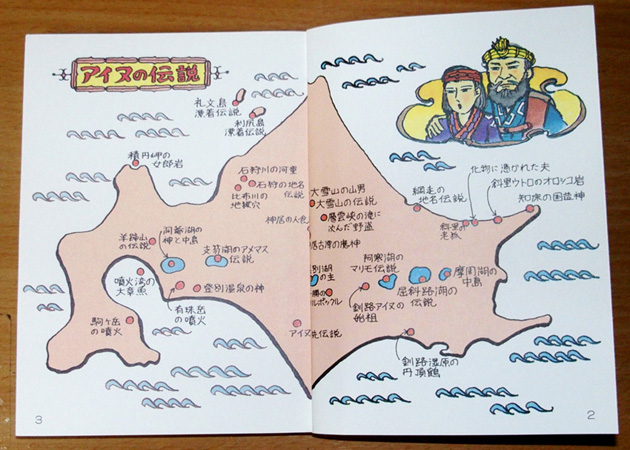 アイヌの伝説
礼文島
漂着伝説
利尻島
漂着伝説
積丹岬の
女郎岩
石狩川の河童
石狩の地名
伝説
比布川の
地獄穴
羊蹄山
の伝説
洞爺湖の
神と中島
支笏湖のアメマス
伝説
噴火湾の
大章魚
登別温泉の神
有珠岳
の噴火
駒ヶ岳
の噴火
アイヌ
3
大雪山の山男
大雪山の伝説
層雲峡の滝に
沈んだ野盗
居古潭の魔神
別湖
の主
勝の
ルポックル
先伝説
網走の
地名伝説
化物に憑かれた夫
斜里ウトロのオロッコ岩
知床の国造神
斜里の
阿寒湖の
マリモ伝説
釧路アイヌの
始祖
屈斜路湖の
伝説
摩周湖の
中島
釧路湿原の
丹頂鶴
2